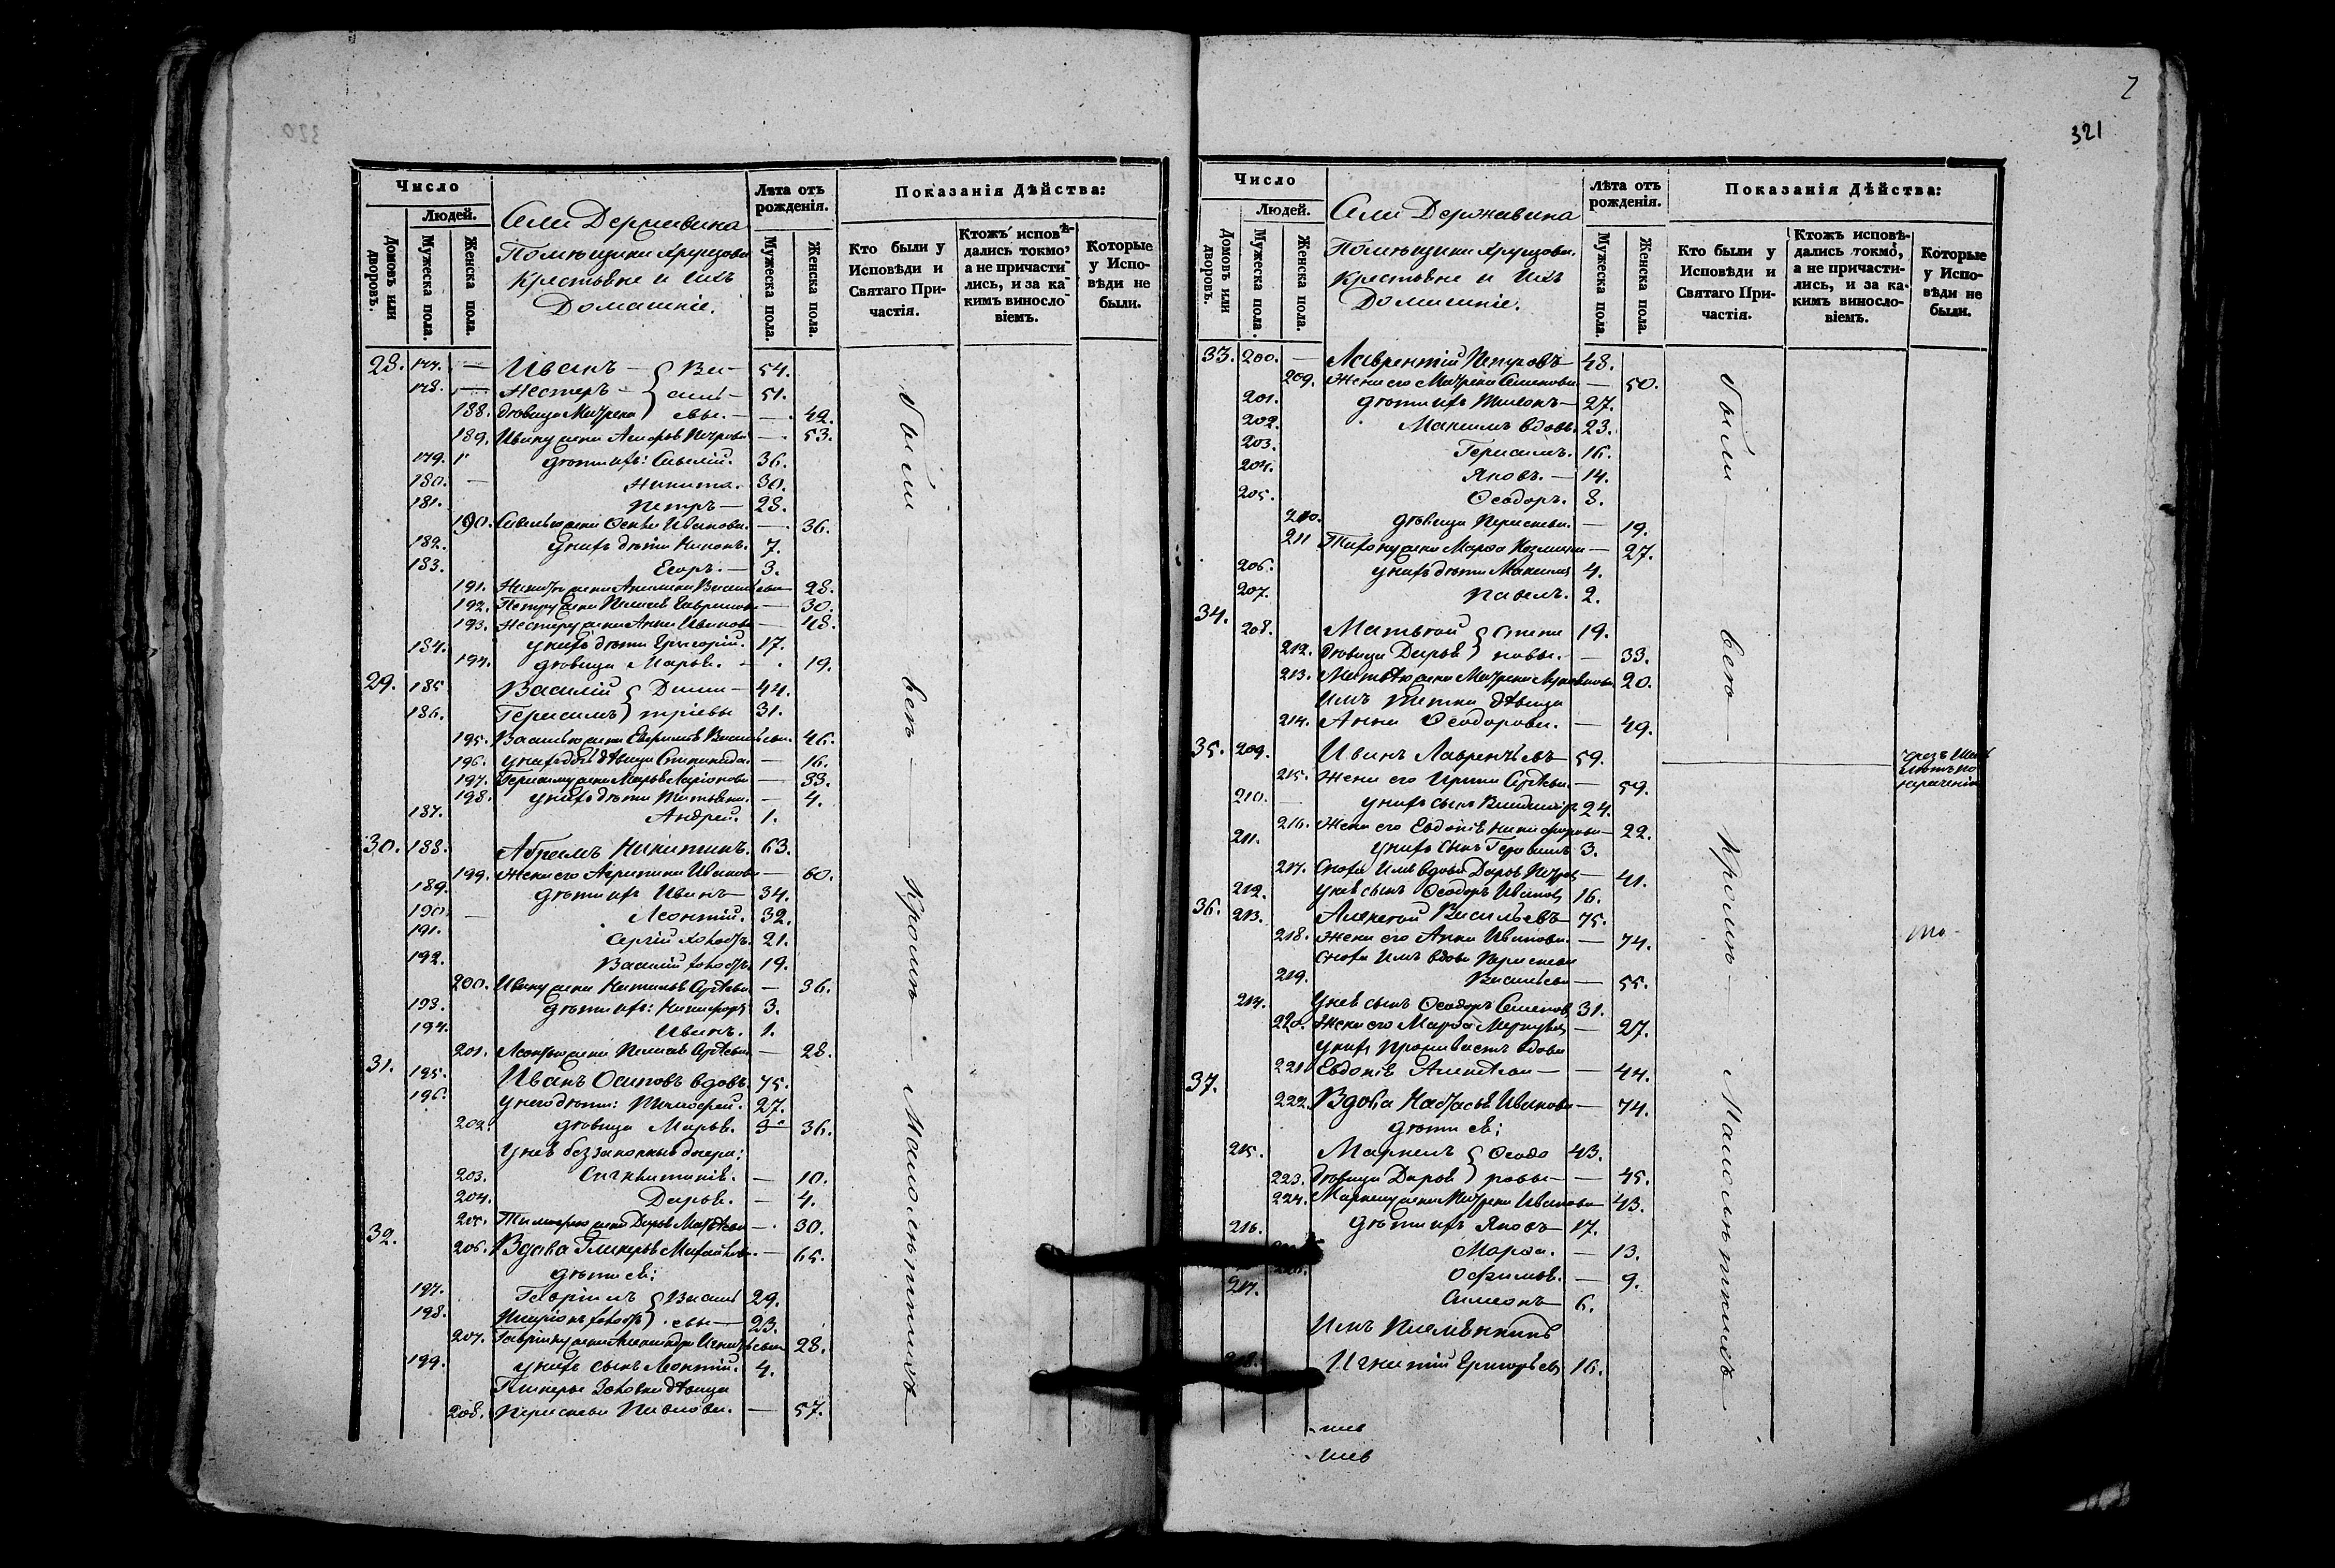 Число
Людей.
Домовъ или дворовъ.
Мужеска пола.
Женска пола.
Села Державина
Помѣщика Хрущова
Крестьяне и ихъ
Домашніе.
Лѣта отъ рожденія.
Мужеска пола.
Женска пола.
Показанія Дѣйства:
Кто были у Исповѣди и Святаго Причастія.
Ктожъ исповѣдались токмо, а не причастились, и за какимъ винословіемъ.
Которые у Исповѣди не были.
28. 177. — Иванъ — Ва- 54.
178. — Нестеръ — силь- 51.
188. дѣвица Матрена евы. — 42.
189. Ивану жена Петрова — 53.
179. 1 дѣти ихъ: Савелій. 36.
180. — Никита. 30.
181. Петръ — 28.
190. Савелью жена Иванова. — 36.
182. у нихъ дѣти 7.
183. Егоръ. — 3.
191. Никитѣ жена Васильева — 28.
192. Петру жена Пелагея Гаврилова — 30.
193. Нестеру жена Анна Иванова — 48.
184. у нихъ дѣти Григорій. 17.
194. дѣвица Марья. — 19.
29. 185. Василій Дими- 44.
186. Герасимъ тріевы 31.
195. Василью жена Васильева. 46.
196. у нихъ дочь дѣвица Степанида. — 16.
197. Герасиму жена Марья Ларіонова — 33.
198. у нихъ дѣти Татьяна. — 4.
187. Андрей. 1.
30. 188. Абрамъ Никитинъ. 63.
199. Жена его Агрипина Иванова — 60.
189. дѣти ихъ Иванъ — 34.
190. — Леонтій. 32.
191. Сергій холостъ. 21.
192. Василій холостъ. 19.
200. Ивану жена Наталья Сергѣева — 36.
193. дѣти ихъ: Никифоръ 3.
194. Иванъ. 1.
201. Леонтью жена Пелагея Сергѣева — 28.
31. 195. Иванъ Осиповъ вдовъ. 75.
196. у него дѣти: Тимофей. 27.
202. дѣвица Марья. 36.
У нея беззаконныя дочери:
203. — 10.
204. Дарья. — 4.
205. Тимофею жена Дарья Матвѣева — 30.
32. 206. Вдова Гликерья Михайлова. — 65.
дѣти ея:
197. Гавріилъ Василь 29.
198. холостъ евы — 23.
207. Гаврилу жена Александра Игнатьева 28.
199. у нихъ сынъ Леонтій. 4.
Гликерьи Золовка дѣвица
208. Параскева Павлова. — 57.
были — всѣ — кромѣ — Малолѣтнихъ
2
321
Число
Людей.
Домовъ или дворовъ.
Мужеска пола.
Женска пола.
Села Державина
Помѣщика Хрущова.
Крестьяне и ихъ
Домашніе.
Лѣта отъ рожденія.
Мужеска пола.
Женска пола.
Показанія Дѣйства:
Кто были у Исповѣди и Святаго Причастія.
Ктожъ исповѣдались токмо, а не причастились, и за какимъ винословіемъ.
Которые у Исповѣди не были.
33. 200. — Лаврентій Петровъ — 48.
209. Жена его Матрена Семенова — 50.
201. дѣти ихъ Тихонъ — 27.
202. Максимъ вдовъ. 23.
203. Герасимъ. 16.
204. Яковъ. — 14.
205. Ѳеодоръ. 8.
210. дѣвица Параскева. — 19.
211 Тихону жена Марѳа Козмина — 27.
206. у нихъ дѣти Максимъ 4.
207. Павелъ. 2.
34. 208. Матвей Степа 19.
212. дѣвица Дарья новы. — 33.
213. Матвѣю жена Матрена 20.
Имъ тетка дѣвица
214. Анна Ѳеодорова. — 49.
35. 209. Иванъ Лаврентьевъ 59.
215. Жена его Ирина Сергѣева. — 59.
210. — у нихъ сынъ Владиміръ 24.
216. Жена его Евдокія Никифорова — 22.
211. у нихъ сынъ Герасимъ 3.
217. Сноха имъ вдова Дарья Петрова — 41.
212. у нея сынъ Ѳеодоръ Ивановъ 16.
36. 213. Алексей Васильевъ — 75.
218. Жена его Анна Иванова. — 74.
Сноха имъ вдова Параскева
219. Васильева — 55.
214. У нея сынъ Ѳеодоръ Семеновъ 31.
220. Жена его Марѳа — 27.
У нихъ проживаетъ вдова
221 Евдокія — 44.
37. 222. Вдова Настасья Иванова — 74.
дѣти ея:
215. Маркелъ Ѳеодо 43.
223. дѣвица Дарья ровы — 45.
224. Маркелу жена Матрена Иванова 43.
216. дѣти ихъ Яковъ — 17.
Марѳа. — 13.
— 9.
217. Симеонъ — 6.
Имъ племянникъ
218. Игнатій Григорьевъ 16.
были — всѣ — кромѣ — Малолѣтнихъ